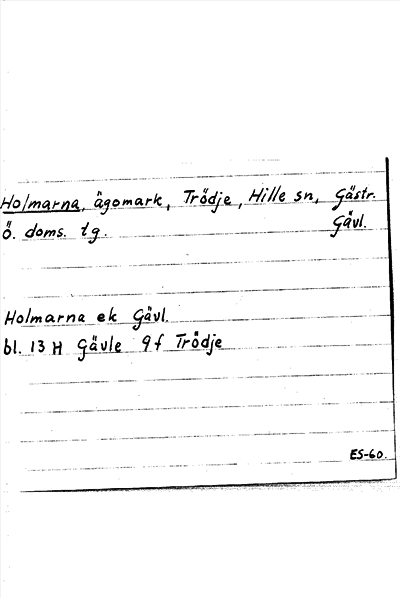 Holmarna, ägomark, Trödje, Hille sn, Gästr.
Ö. doms. tg. Gävl.
Holmarna ek Gävl.
bl. 13 H Gävle 9f Trödje
ES-60.